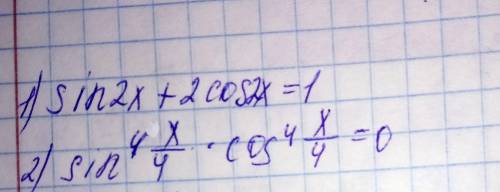 1) sin2x + 2cos2x = 1
2) sin⁴ x/4 · cos⁴ x/4 = 0